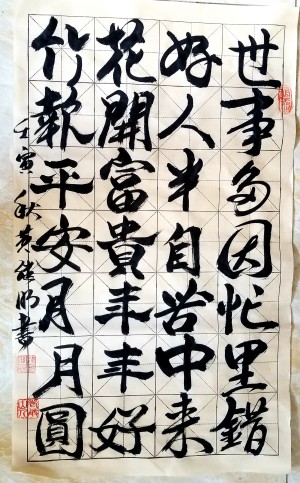 世事多因忙里錯
好人半自苦中来
花開富貴年年好
竹報平安月月圓
壬寅秋
書